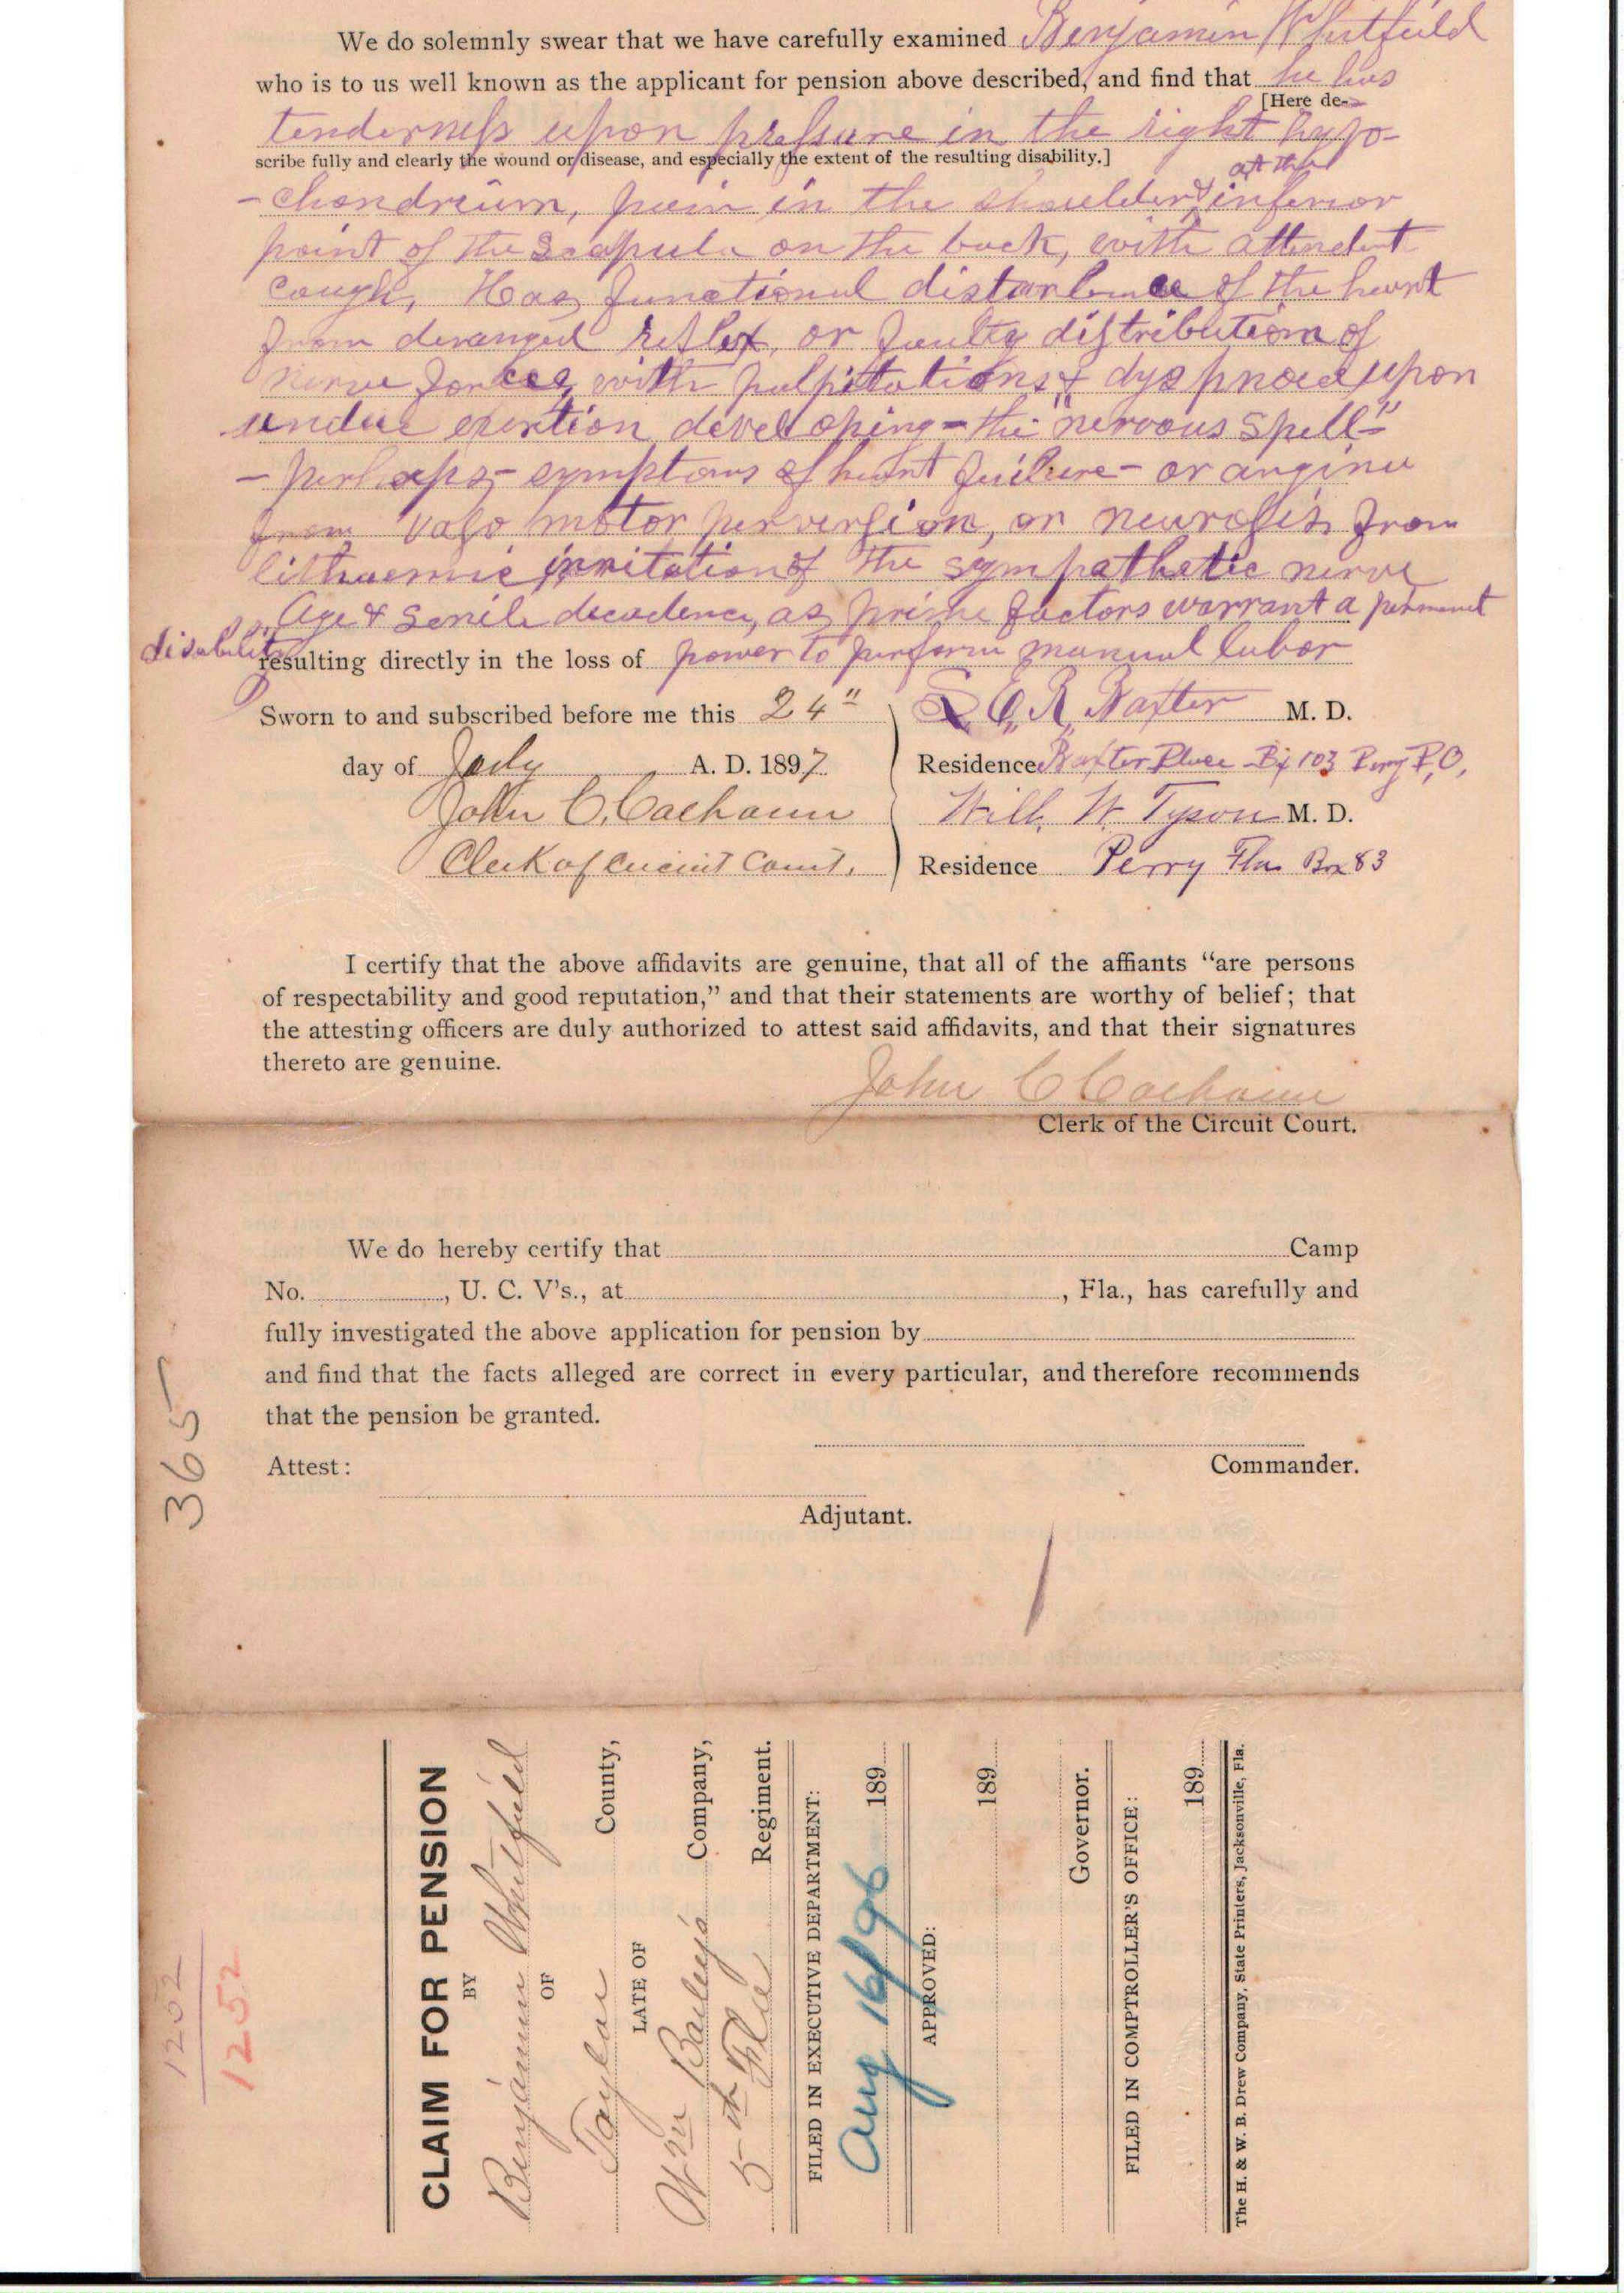 We do solemnly swear that we have carefully examined Benjamin Whitfield
who is to us well known as the applicant for pension above described, and find that he has
[Here de-
tenderness upon pressure in the right hypo-
scribe fully and clearly the wound or disease, and especially the extent of the resulting disability.]
at the
- chondrium, pain in the shoulder & inferior
point of the scapula on the back, with attendent
cough, Has functional disturbance of the heart
from deranged reflex, or faulty distribution of
nerve forces, with palpitations & dyspnoea upon
undue exertion developing - the "nervous spell"
- perhaps - symptoms of heart failure - or angina
from vaso motor perversion, or neurosis from
lithaemic irritation of the sympathetic nerve
Age & senile decadency, as prime factors warrant a permanent
disability
resulting directly in the loss of power to perform manual labor
Sworn to and subscribed before me this 24"
S. C. R. Baxter M. D.
day of July A. D. 1897
Residence Baxter Place - Bx 103 Perry P.O.
John C. Calhoun
Will. W. Tyson M. D.
Clerk of Circuit Court.
Residence Perry Fla Box 83
I certify that the above affidavits are genuine, that all of the affiants "are persons
of respectability and good reputation," and that their statements are worthy of belief; that
the attesting officers are duly authorized to attest said affidavits, and that their signatures
thereto are genuine.
John C Calhoun
Clerk of the Circuit Court.
We do hereby certify that Camp
No. , U. C. V's., at , Fla., has carefully and
fully investigated the above application for pension by
and find that the facts alleged are correct in every particular, and therefore recommends
that the pension be granted.
Attest: Commander.
Adjutant.
365
1202
1252
CLAIM FOR PENSION
BY
Benjamin Whitfield
OF
Taylor County,
LATE OF
Wm Bailey's Company,
5th Fla Regiment.
FILED IN EXECUTIVE DEPARTMENT:
Aug 16/96 189
APPROVED:
189
Governor.
FILED IN COMPTROLLER'S OFFICE:
189
The H. & W. B. Drew Company, State Printers, Jacksonville, Fla.